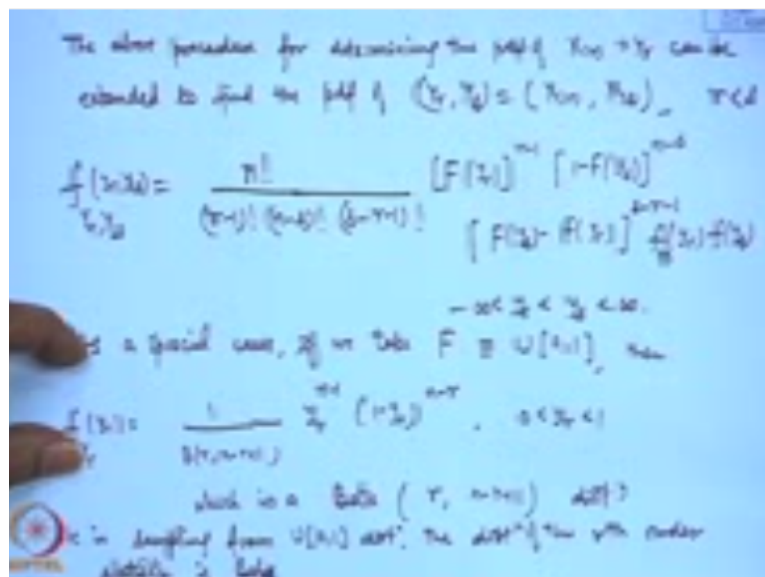 The above procedure for determining the pdf of X(r) = Yr can be
extended to find the pdf of (Yr, Ys) = (X(r), X(s)), r < s
f (yr, ys) = n! [F(yr)]^{r-1} [1-F(ys)]^{n-s}
Yr, Ys (r-1)! (n-s)! (s-r-1)! [F(ys) - F(yr)]^{s-r-1} f(yr) f(ys)
-∞ < yr < ys < ∞.
a special case, if we take F ≡ U[0,1], then
f (yr) = 1 yr^{r-1} (1-yr)^{n-r}, 0 < yr < 1
Yr B(r, n-r+1)
which is a Beta (r, n-r+1) distn
in sampling from U[0,1] distn, the distn of the rth order
statistic is Beta